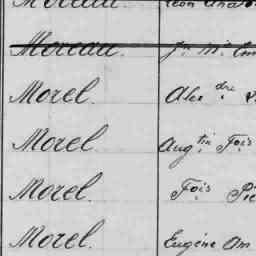 Moreau. Léon
Moreau.
Morel. Alex dre
Morel. Aug tin Fois
Morel. Fois
Morel. Eugène